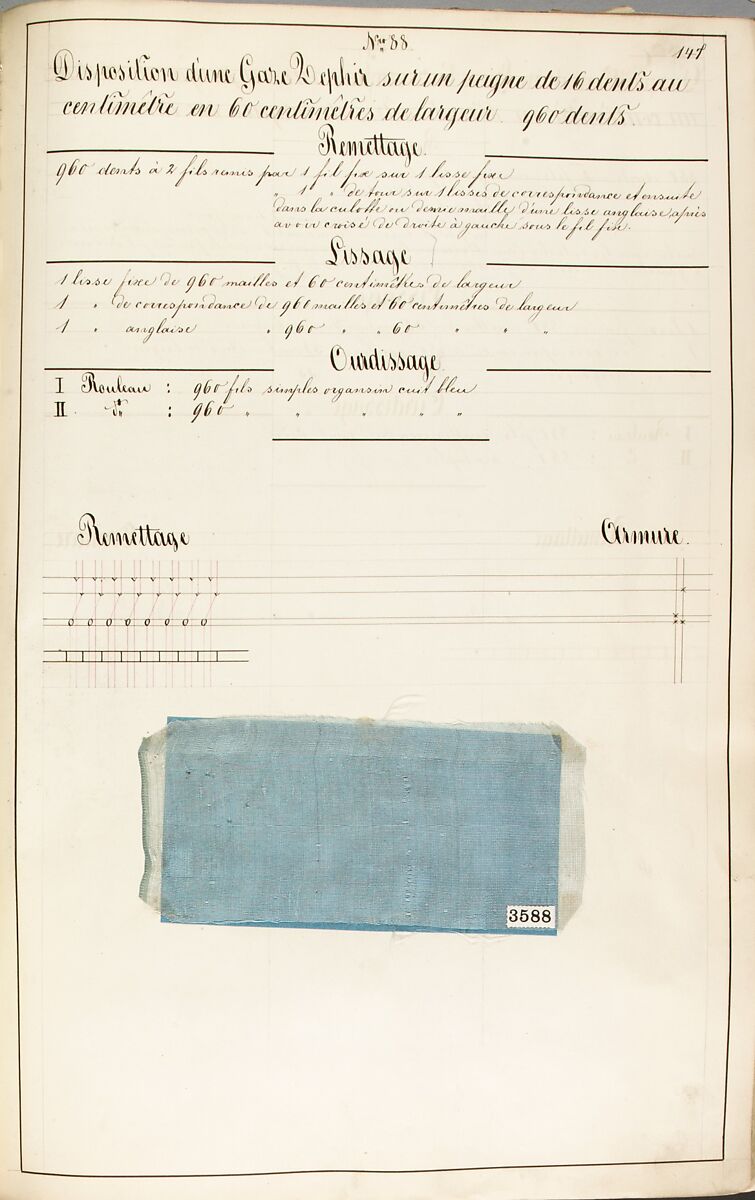 Nro 88.
Disposition d'une Gaze Zephir sur un peigne de 16 dents au
centimêtre en 60 centimêtres de largeur. 960 dents.
Remettage.
960 dents à 2 fils remis par 1 fil fix sur 1 lisse fixe
" 1 " de tour sur 1 lisses de correspondance et ensuite
dans la culotte ou demie maille d'une lisse anglaise, après
avoir croisé de droite à gauche sous le fil fix.
Lissage
1 lisse fixe de 960 mailles et 60 centimêtres de largeur
1 " de correspondance de 960 mailles et 60 centimêtres de largeur
1 " anglaise " 960 " " 60 " " "
Ourdissage.
I Rouleau : 960 fils simples organsin cuit bleu
II do : 960 " " " " "
Remettage
Armure.
3588